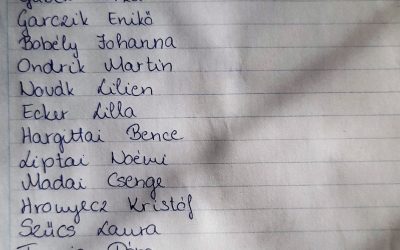 Garczik Enikő
Bobély Johanna
Ondrik Martin
Novák Lilien
Ecker Lilla
Hargittai Bence
Liptai Noémi
Madai Csenge
Hronyecz Kristóf
Szűcs Laura